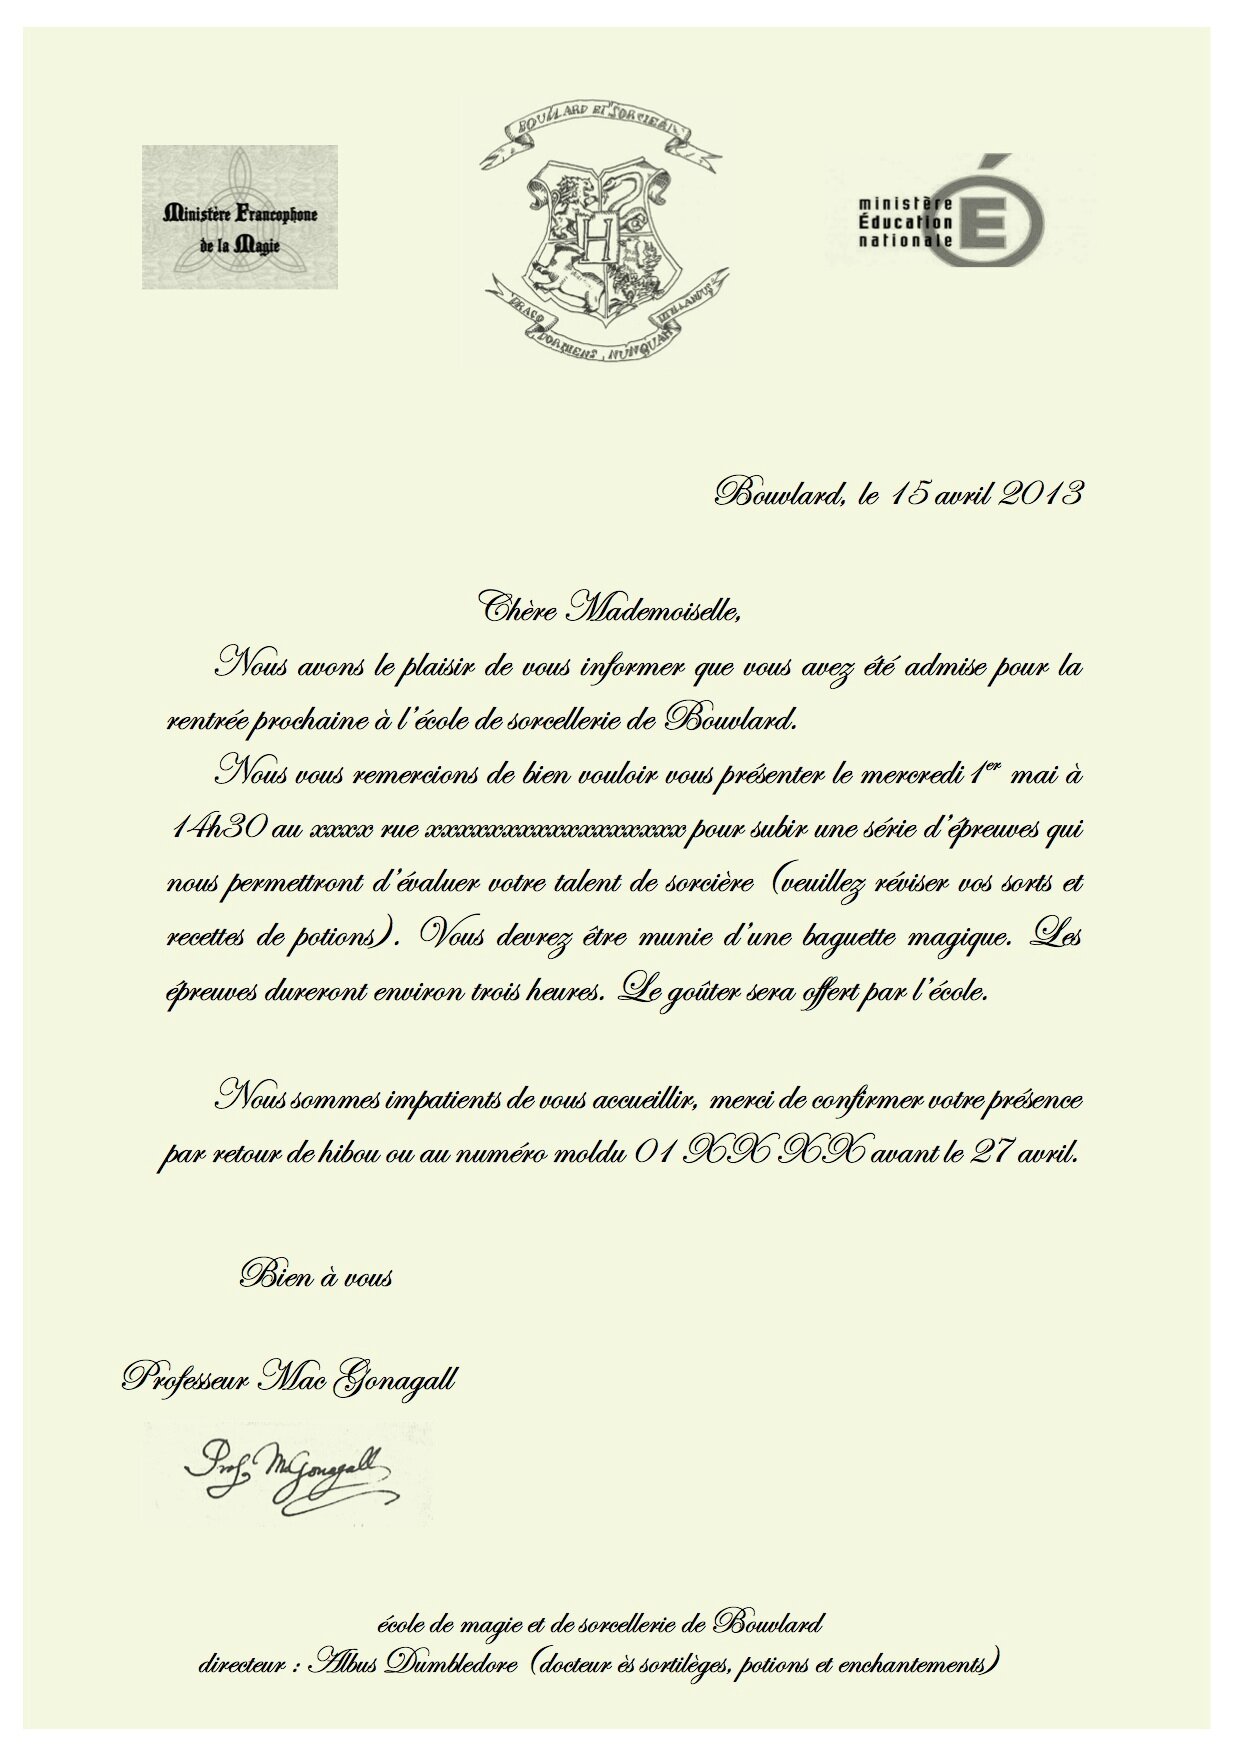 BOUVLARD ET SORCIER
Ministère Francophone
de la Magie
ministère
Éducation
nationale
É
H
DRACO DORMIENS NUNQUAM TITILLANDUS
Bouvlard, le 15 avril 2013
Chère Mademoiselle,
Nous avons le plaisir de vous informer que vous avez été admise pour la
rentrée prochaine à l'école de sorcellerie de Bouvlard.
Nous vous remercions de bien vouloir vous présenter le mercredi 1er mai à
14h30 au xxxx rue xxxxxxxxxxxxxxxxxx pour subir une série d'épreuves qui
nous permettront d'évaluer votre talent de sorcière (veuillez réviser vos sorts et
recettes de potions). Vous devrez être munie d'une baguette magique. Les
épreuves dureront environ trois heures. Le goûter sera offert par l'école.
Nous sommes impatients de vous accueillir, merci de confirmer votre présence
par retour de hibou ou au numéro moldu 01 XX XX avant le 27 avril.
Bien à vous
Professeur Mac Gonagall
Prof. McGonagall
école de magie et de sorcellerie de Bouvlard
directeur : Albus Dumbledore (docteur ès sortilèges, potions et enchantements)